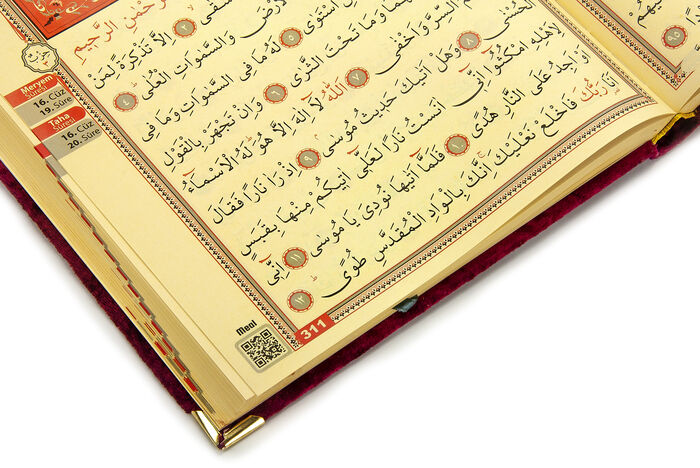 حْمٰنِ الرَّحِيمِ
شْقٰى ٢ اِلَّا تَذْكِرَةً لِمَنْ
رْضَ وَالسَّمٰوَاتِ الْعُلٰى ٤
اسْتَوٰى ٥ لَهُ مَا فِي السَّمٰوَاتِ وَمَا فِي
مَا وَمَا تَحْتَ الثَّرٰى ٦ وَاِنْ تَجْهَرْ بِالْقَوْلِ
السِّرَّ وَاَخْفٰى ٧ اَللّٰهُ لَا اِلٰهَ اِلَّا هُوَ لَهُ الْاَسْمَاءُ
الْحُسْنٰى ٨ وَهَلْ اَتٰيكَ حَدِيثُ مُوسٰى ٩ اِذْ رَاٰ نَارًا فَقَالَ
لِاَهْلِهِ امْكُثُوا اِنِّي اٰنَسْتُ نَارًا لَعَلِّي اٰتِيكُمْ مِنْهَا بِقَبَسٍ
اَوْ اَجِدُ عَلَى النَّارِ هُدًى ١٠ فَلَمَّا اَتٰيهَا نُودِيَ يَا مُوسٰى ١١ اِنِّي
اَنَا رَبُّكَ فَاخْلَعْ نَعْلَيْكَ اِنَّكَ بِالْوَادِ الْمُقَدَّسِ طُوًى ١٢
Meryem
Sûresi
16. Cüz
19. Sûre
Taha
Sûresi
16. Cüz
20. Sûre
Meal
311